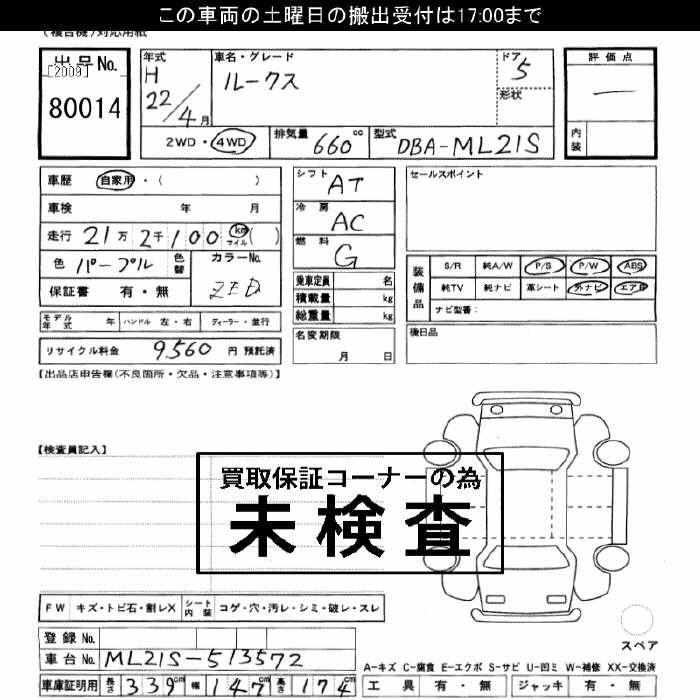 この車両の土曜日の搬出受付は17:00まで
(複合機)対応用紙
出品No.
[2009]
80014
年式
H
22/4月
車名・グレード
ルークス
ドア
5
形状
2WD・4WD
排気量
660cc
型式
DBA-ML21S
評価点
—
内装
車歴 自家用・( )
車検 年 月
走行 21万2千100 km マイル ( )
色 パープル 色替
カラーNo.
ZED
保証書 有・無
シフト
AT
冷房
AC
燃料
G
乗車定員 名
積載量 kg
総重量 kg
名変期限
月 日
セールスポイント
装備品
S/R 純A/W P/S P/W ABS
純TV 純ナビ 革シート 外ナビ エアB
ナビ型番:
後日品
モデル年式 年 ハンドル 左・右 ディーラー・並行
リサイクル料金 9560 円 預託済
【出品店申告欄(不良箇所・欠品・注意事項等)】
【検査員記入】
買取保証コーナーの為
未検査
FW キズ・トビ石・割レX シート内装 コゲ・穴・汚レ・シミ・破レ・スレ
登録No.
車台No. ML21S-513572
車庫証明用 長さ 339cm 幅 147cm 高さ 174cm
スペア
A-キズ C-腐食 E-エクボ S-サビ U-凹ミ W-補修 XX-交換済
工具 有・無 ジャッキ 有・無